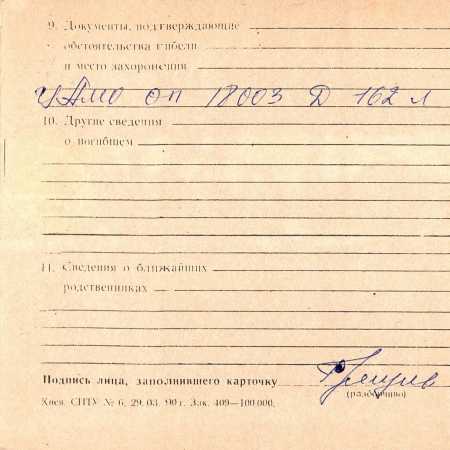 9. Документы, подтверждающие
обстоятельства гибели
и место захоронения
ЦАМО оп 18003 Д 162 л
10. Другие сведения
о погибшем
11. Сведения о ближайших
родственниках
Подпись лица, заполнившего карточку
(разборчиво)
Киев. СПТУ № 6. 29. 03. 90 г. Зак. 409—100 000.